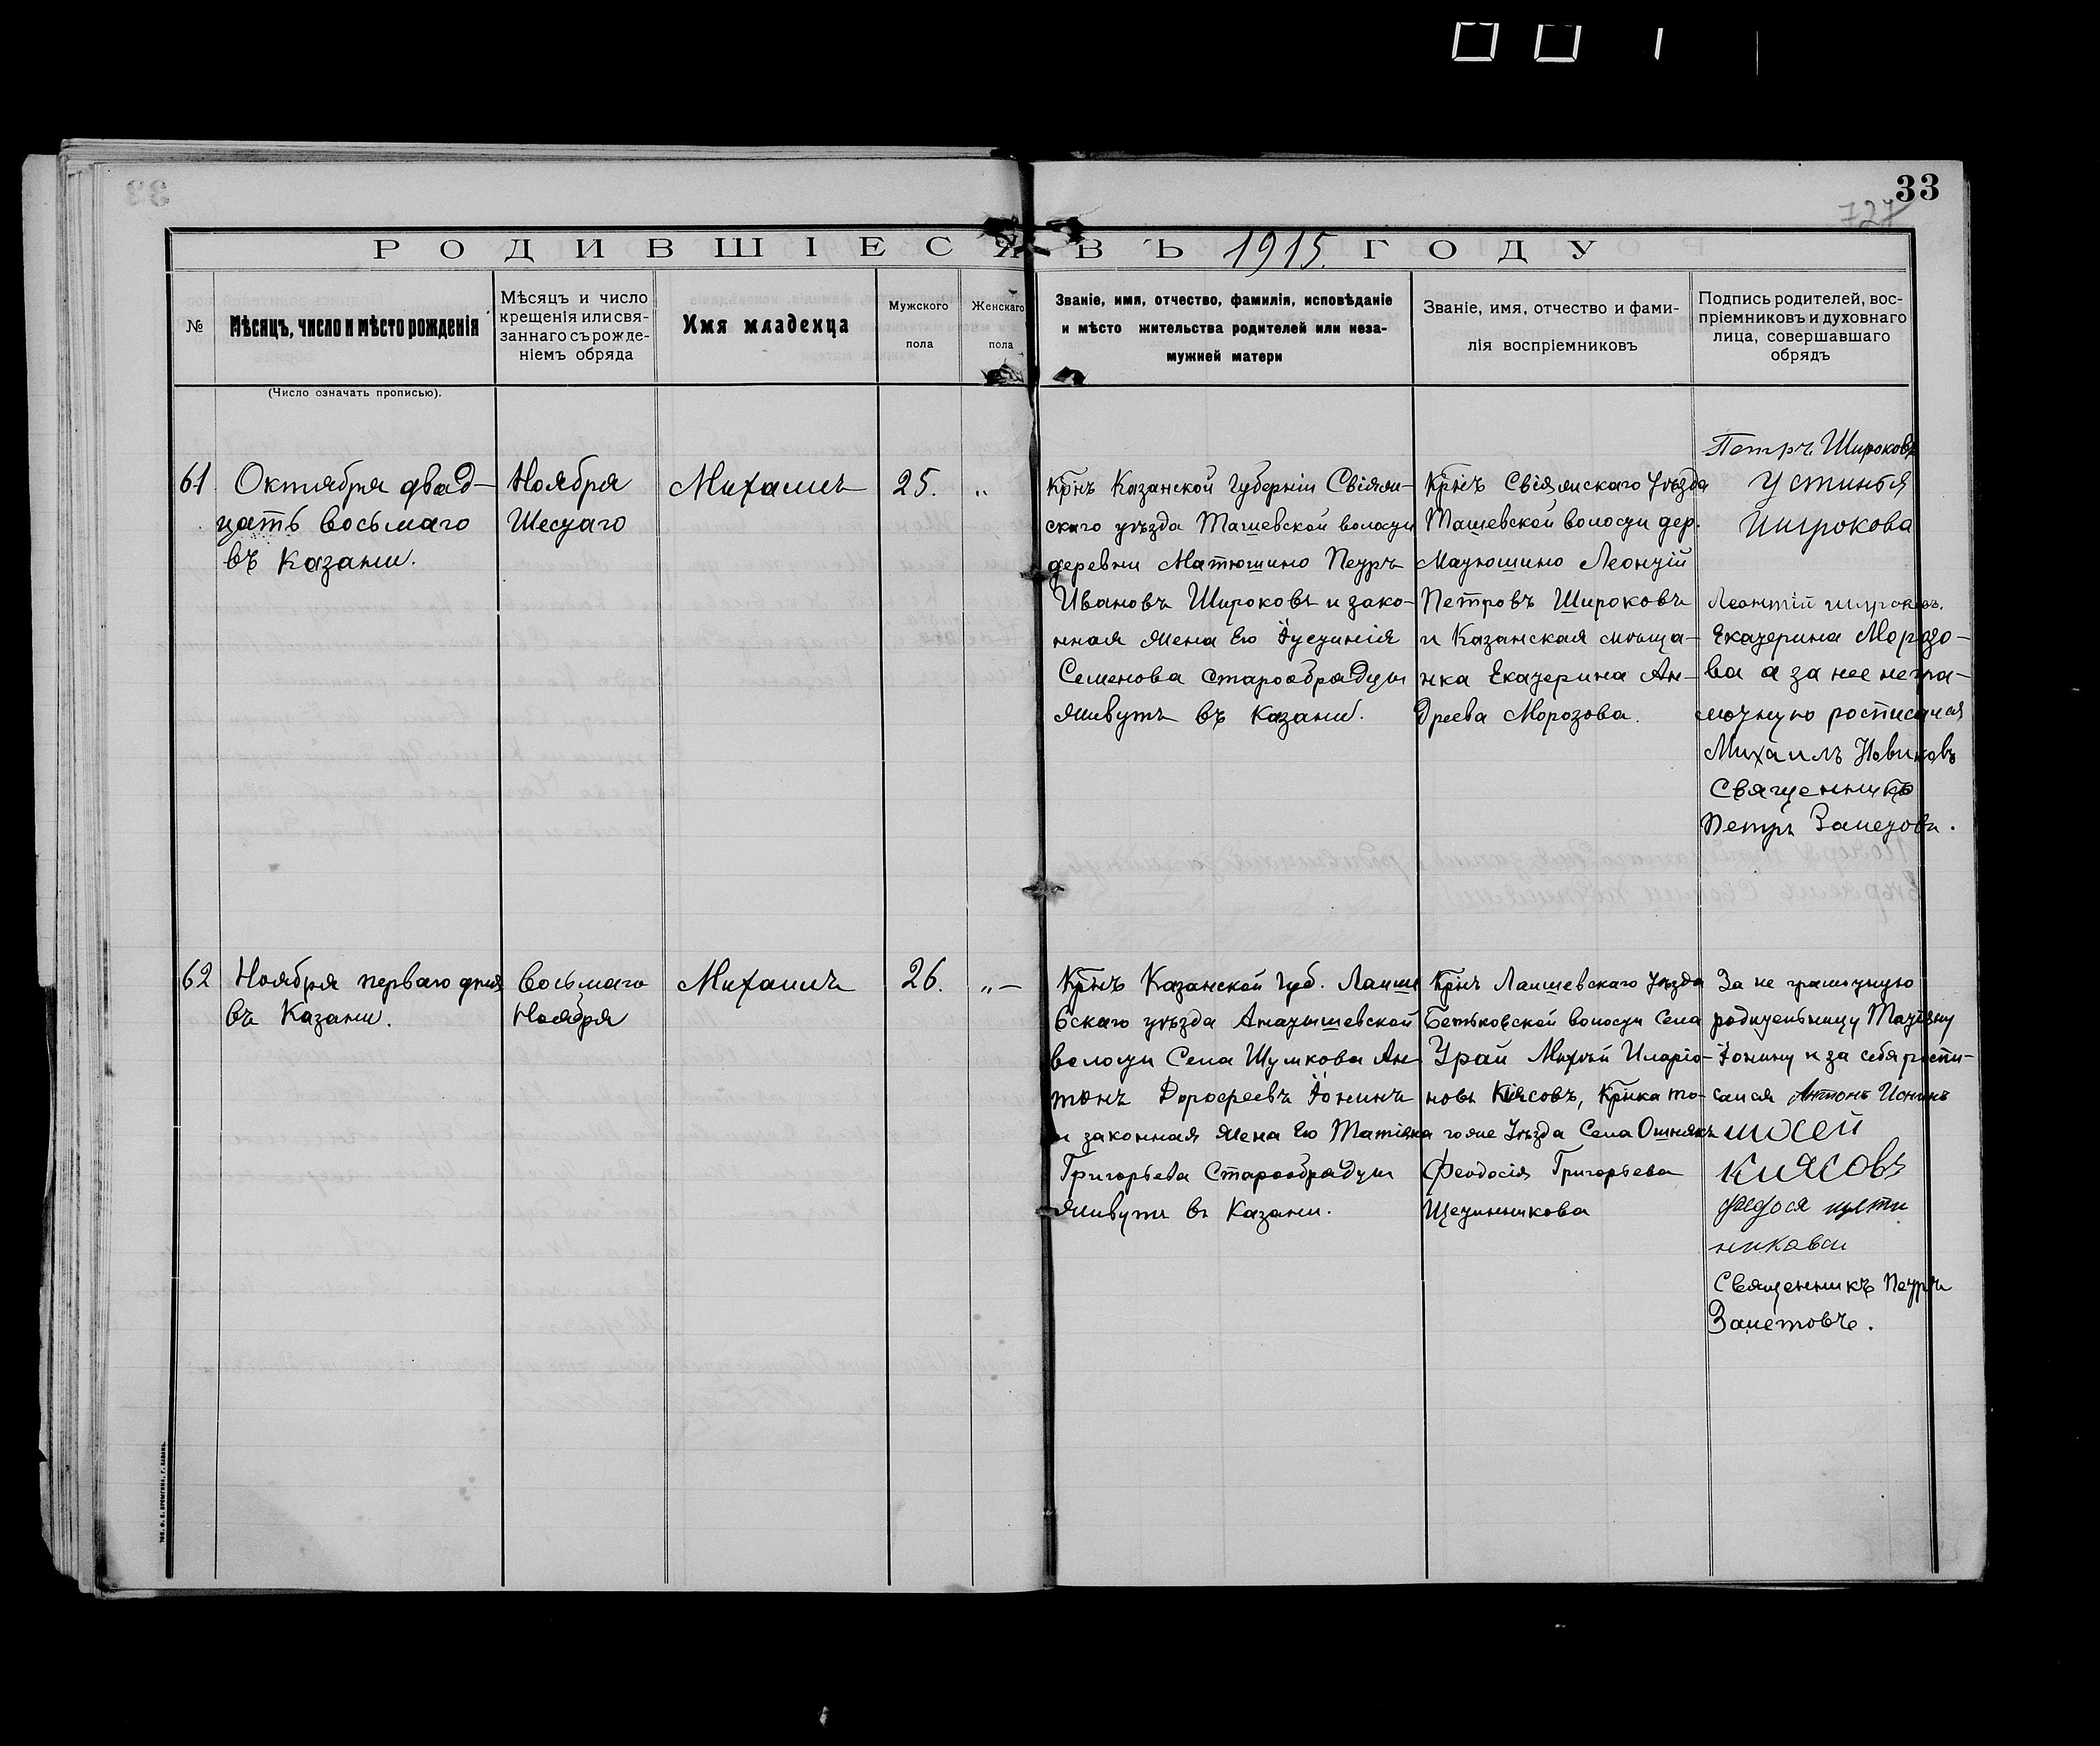 33
727
РОДИВШІЕСЯ ВЪ 1915. ГОДУ
№
Мѣсяцъ, число и мѣсто рожденія
(Число означать прописью).
Мѣсяцъ и число
крещенія или свя-
заннаго съ рожде-
ніемъ обряда
Имя младенца
Мужского
пола
Женскаго
пола
Званіе, имя, отчество, фамилія, исповѣданіе
и мѣсто жительства родителей или неза-
мужней матери
Званіе, имя, отчество и фами-
лія воспріемниковъ
Подпись родителей, вос-
пріемниковъ и духовнаго
лица, совершавшаго
обрядъ
61
Октября двад-
цать восьмаго
въ Казани.
Ноября
Шестаго
Михаилъ
25.
"
Крнъ Казанской Губерніи Свіяж-
скаго уѣзда Ташевской волости
деревни Матюшино Петръ
Ивановъ Широковъ и зако-
нная жена Его Іустинія
Семенова старообрядцы
живутъ въ Казани.
Крнъ Свіяжскаго Уѣзда
Ташевской волости дер.
Матюшино Леонтій
Петровъ Широковъ
и Казанская мѣща-
нка Екатерина Ан-
дреева Морозова.
Петръ Широковъ
Устинья
Широкова
Леонтій широковъ.
Екатерина Морозо-
ва а за нее негра-
мотную росписался
Михаилъ Новиковъ
Священникъ
Петръ Заметовъ.
62
Ноября перваго дня
въ Казани.
Восьмаго
Ноября
Михаилъ
26.
"—
Крнъ Казанской Губ. Лаише
вскаго уѣзда Анатышевской
волости Села Шумкова Ан-
тонъ Дорофеевъ Іонинъ
и законная жена Его Татіяна
Григорьева Старообрядцы
живутъ въ Казани.
Крнъ Лаишевскаго Уѣзда
Бетьковской волости Села
Урай Мосей Иларіо-
новъ Кіясовъ, Крнка то-
гоже Уѣзда Села Ошнякъ
Феодосія Григорьева
Щетинникова
За не грамотную
родительницу Татіяну
Іонину и за себя роспи-
сался Антонъ Ионинъ
мосей
киясовъ
федося щети
никова
Священникъ Петръ
Заметовъ.